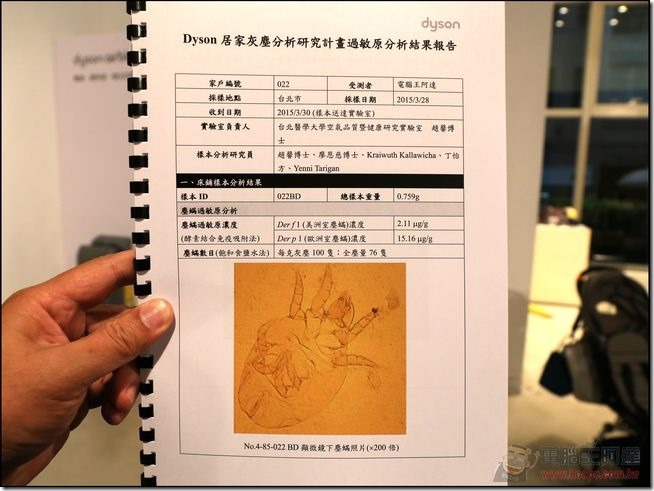 dyson
Dyson 居家灰塵分析研究計畫過敏原分析結果報告
家戶編號 022 受測者 電腦王阿達
採樣地點 台北市 採樣日期 2015/3/28
收到日期 2015/3/30 (樣本送達實驗室)
實驗室負責人 台北醫學大學空氣品質暨健康研究實驗室 趙馨博
士
樣本分析研究員 趙馨博士、廖思慈博士、Kraiwuth Kallawicha、丁怡
方、Yenni Tarigan
一、床鋪樣本分析結果
樣本 ID 022BD 總樣本重量 0.759g
塵蟎過敏原分析
塵蟎過敏原濃度 Der f 1 (美洲室塵蟎)濃度 2.11 μg/g
(酵素結合免疫吸附法) Der p 1 (歐洲室塵蟎)濃度 15.16 μg/g
塵蟎數目(飽和食鹽水法) 每克灰塵 100 隻；全塵量 76 隻
No.4-85-022 BD 顯微鏡下塵蟎照片(×200 倍)
電腦王阿達
www.kocpc.com.tw